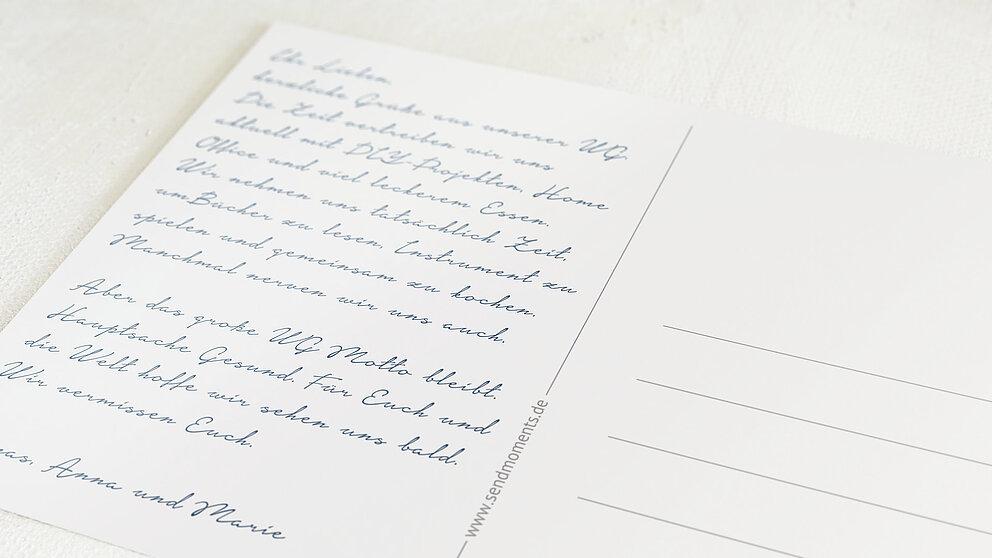 Ihr Lieben,
herzliche Grüße aus unserer WG.
Die Zeit vertreiben wir uns
aktuell mit DIY-Projekten, Home
Office und viel leckerem Essen.
Wir nehmen uns tatsächlich Zeit,
um Bücher zu lesen, Instrument zu
spielen und gemeinsam zu kochen.
Manchmal nerven wir uns auch.
Aber das große WG Motto bleibt,
Hauptsache Gesund. Für Euch und
die Welt hoffe wir sehen uns bald.
Wir vermissen Euch.
Anna und Marie
www.sendmoments.de